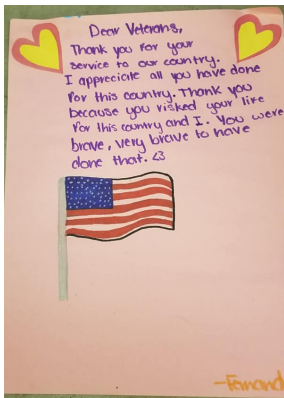 Dear Veterans,
Thank you for your
service to our country.
I appreciate all you have done
for this country. Thank you
because you risked your life
for this country and I. You were
brave, very brave to have
done that. <3
-Fernand